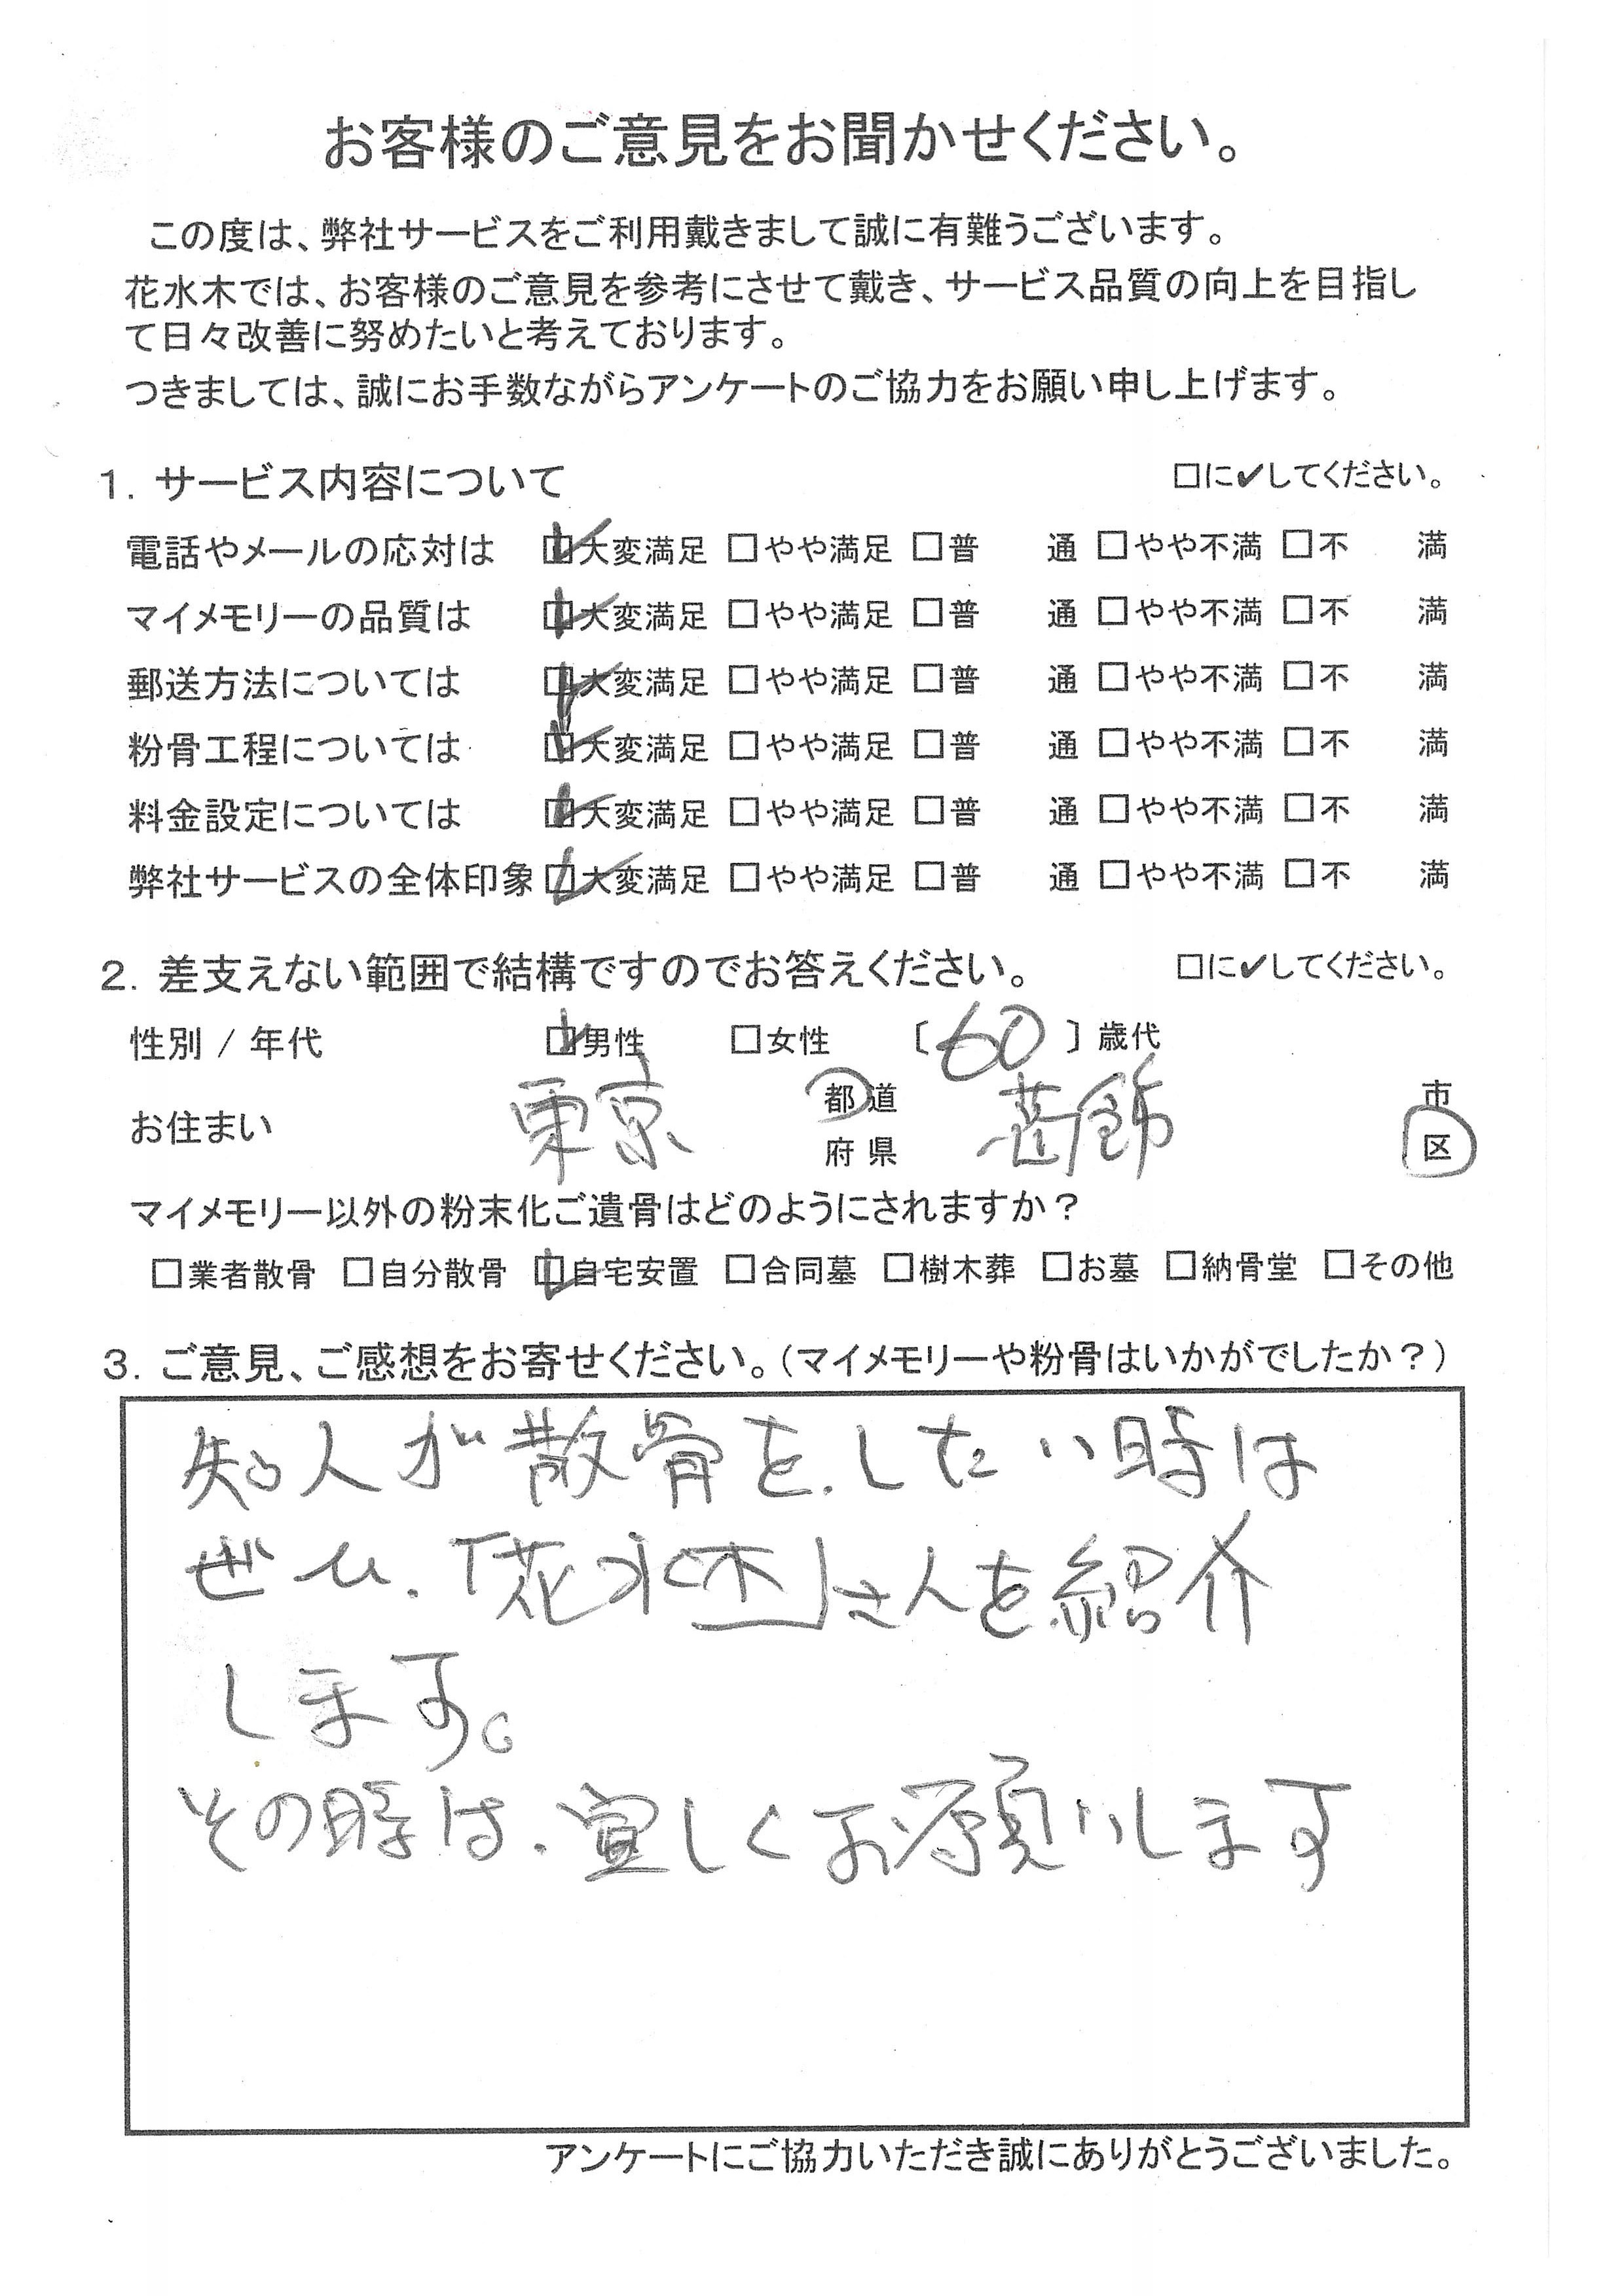 お客様のご意見をお聞かせください。
この度は、弊社サービスをご利用戴きまして誠に有難うございます。
花水木では、お客様のご意見を参考にさせて戴き、サービス品質の向上を目指し
て日々改善に努めたいと考えております。
つきましては、誠にお手数ながらアンケートのご協力をお願い申し上げます。
1. サービス内容について □に✔してください。
電話やメールの応対は ☑大変満足 □やや満足 □普 通 □やや不満 □不 満
マイメモリーの品質は ☑大変満足 □やや満足 □普 通 □やや不満 □不 満
郵送方法については ☑大変満足 □やや満足 □普 通 □やや不満 □不 満
粉骨工程については ☑大変満足 □やや満足 □普 通 □やや不満 □不 満
料金設定については ☑大変満足 □やや満足 □普 通 □やや不満 □不 満
弊社サービスの全体印象 ☑大変満足 □やや満足 □普 通 □やや不満 □不 満
2. 差支えない範囲で結構ですのでお答えください。 □に✔してください。
性別 / 年代 ☑男性 □女性 〔60〕歳代
お住まい 東京 都道府県 葛飾 市区
マイメモリー以外の粉末化ご遺骨はどのようにされますか？
□業者散骨 □自分散骨 ☑自宅安置 □合同墓 □樹木葬 □お墓 □納骨堂 □その他
3. ご意見、ご感想をお寄せください。（マイメモリーや粉骨はいかがでしたか？）
知人が散骨を、したい時は
ぜひ、「花水木」さんを紹介
します。
その時は、宜しくお願いします
アンケートにご協力いただき誠にありがとうございました。